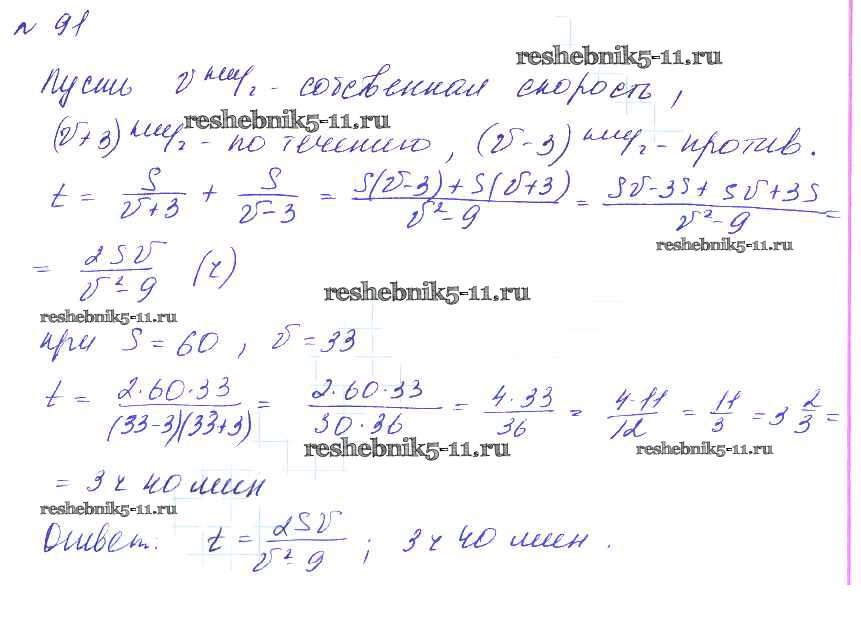 № 91
reshebnik5-11.ru
Пусть v км/ч - собственная скорость,
reshebnik5-11.ru
(v+3) км/ч - по течению, (v-3) км/ч - против.
t = S/(v+3) + S/(v-3) = (S(v-3)+S(v+3))/(v²-9) = (Sv-3S+Sv+3S)/(v²-9) =
reshebnik5-11.ru
= 2Sv/(v²-9) (ч)
reshebnik5-11.ru
reshebnik5-11.ru
при S=60, v=33
t = (2·60·33)/((33-3)(33+3)) = (2·60·33)/(30·36) = (4·33)/36 = (4·11)/12 = 11/3 = 3 2/3 =
reshebnik5-11.ru
reshebnik5-11.ru
= 3 ч 40 мин
reshebnik5-11.ru
Ответ: t = 2Sv/(v²-9); 3 ч 40 мин.